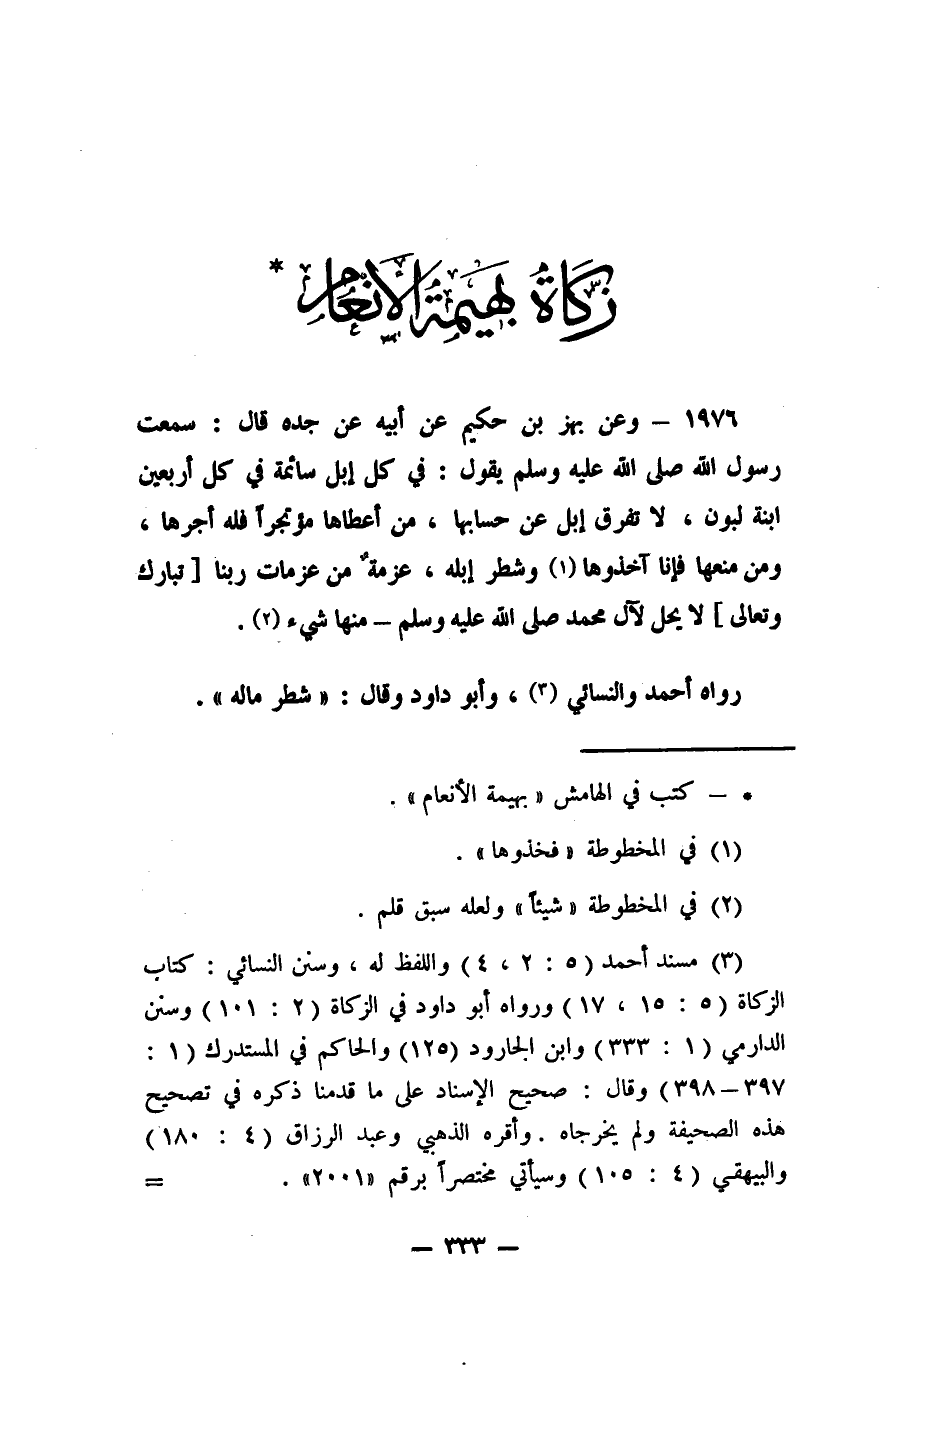 زكاة بهيمة الأنعام *
١٩٧٦ – وعن بهز بن حكيم عن أبيه عن جده قال : سمعت
رسول الله صلى الله عليه وسلم يقول : في كل إبل سائمة في كل أربعين
ابنة لبون ، لا تفرق إبل عن حسابها ، من أعطاها مؤتجراً فله أجرها ،
ومن منعها فإنا آخذوها (١) وشطر إبله ، عزمةٌ من عزمات ربنا [ تبارك
وتعالى ] لا يحل لآل محمد صلى الله عليه وسلم – منها شيء (٢) .
رواه أحمد والنسائي (٣) ، وأبو داود وقال : « شطر ماله » .
* – كتب في الهامش « بهيمة الأنعام » .
(١) في المخطوطة « فخذوها » .
(٢) في المخطوطة « شيئاً » ولعله سبق قلم .
(٣) مسند أحمد ( ٥ : ٢ ، ٤ ) واللفظ له ، وسنن النسائي : كتاب
الزكاة ( ٥ : ١٥ ، ١٧ ) ورواه أبو داود في الزكاة ( ٢ : ١٠١ ) وسنن
الدارمي ( ١ : ٣٣٣ ) وابن الجارود (١٢٥) والحاكم في المستدرك ( ١ :
٣٩٧ – ٣٩٨ ) وقال : صحيح الإسناد على ما قدمنا ذكره في تصحيح
هذه الصحيفة ولم يخرجاه . وأقره الذهبي وعبد الرزاق ( ٤ : ١٨٠ )
والبيهقي ( ٤ : ١٠٥ ) وسيأتي مختصراً برقم «٢٠٠١» . =
– ٣٣٣ –